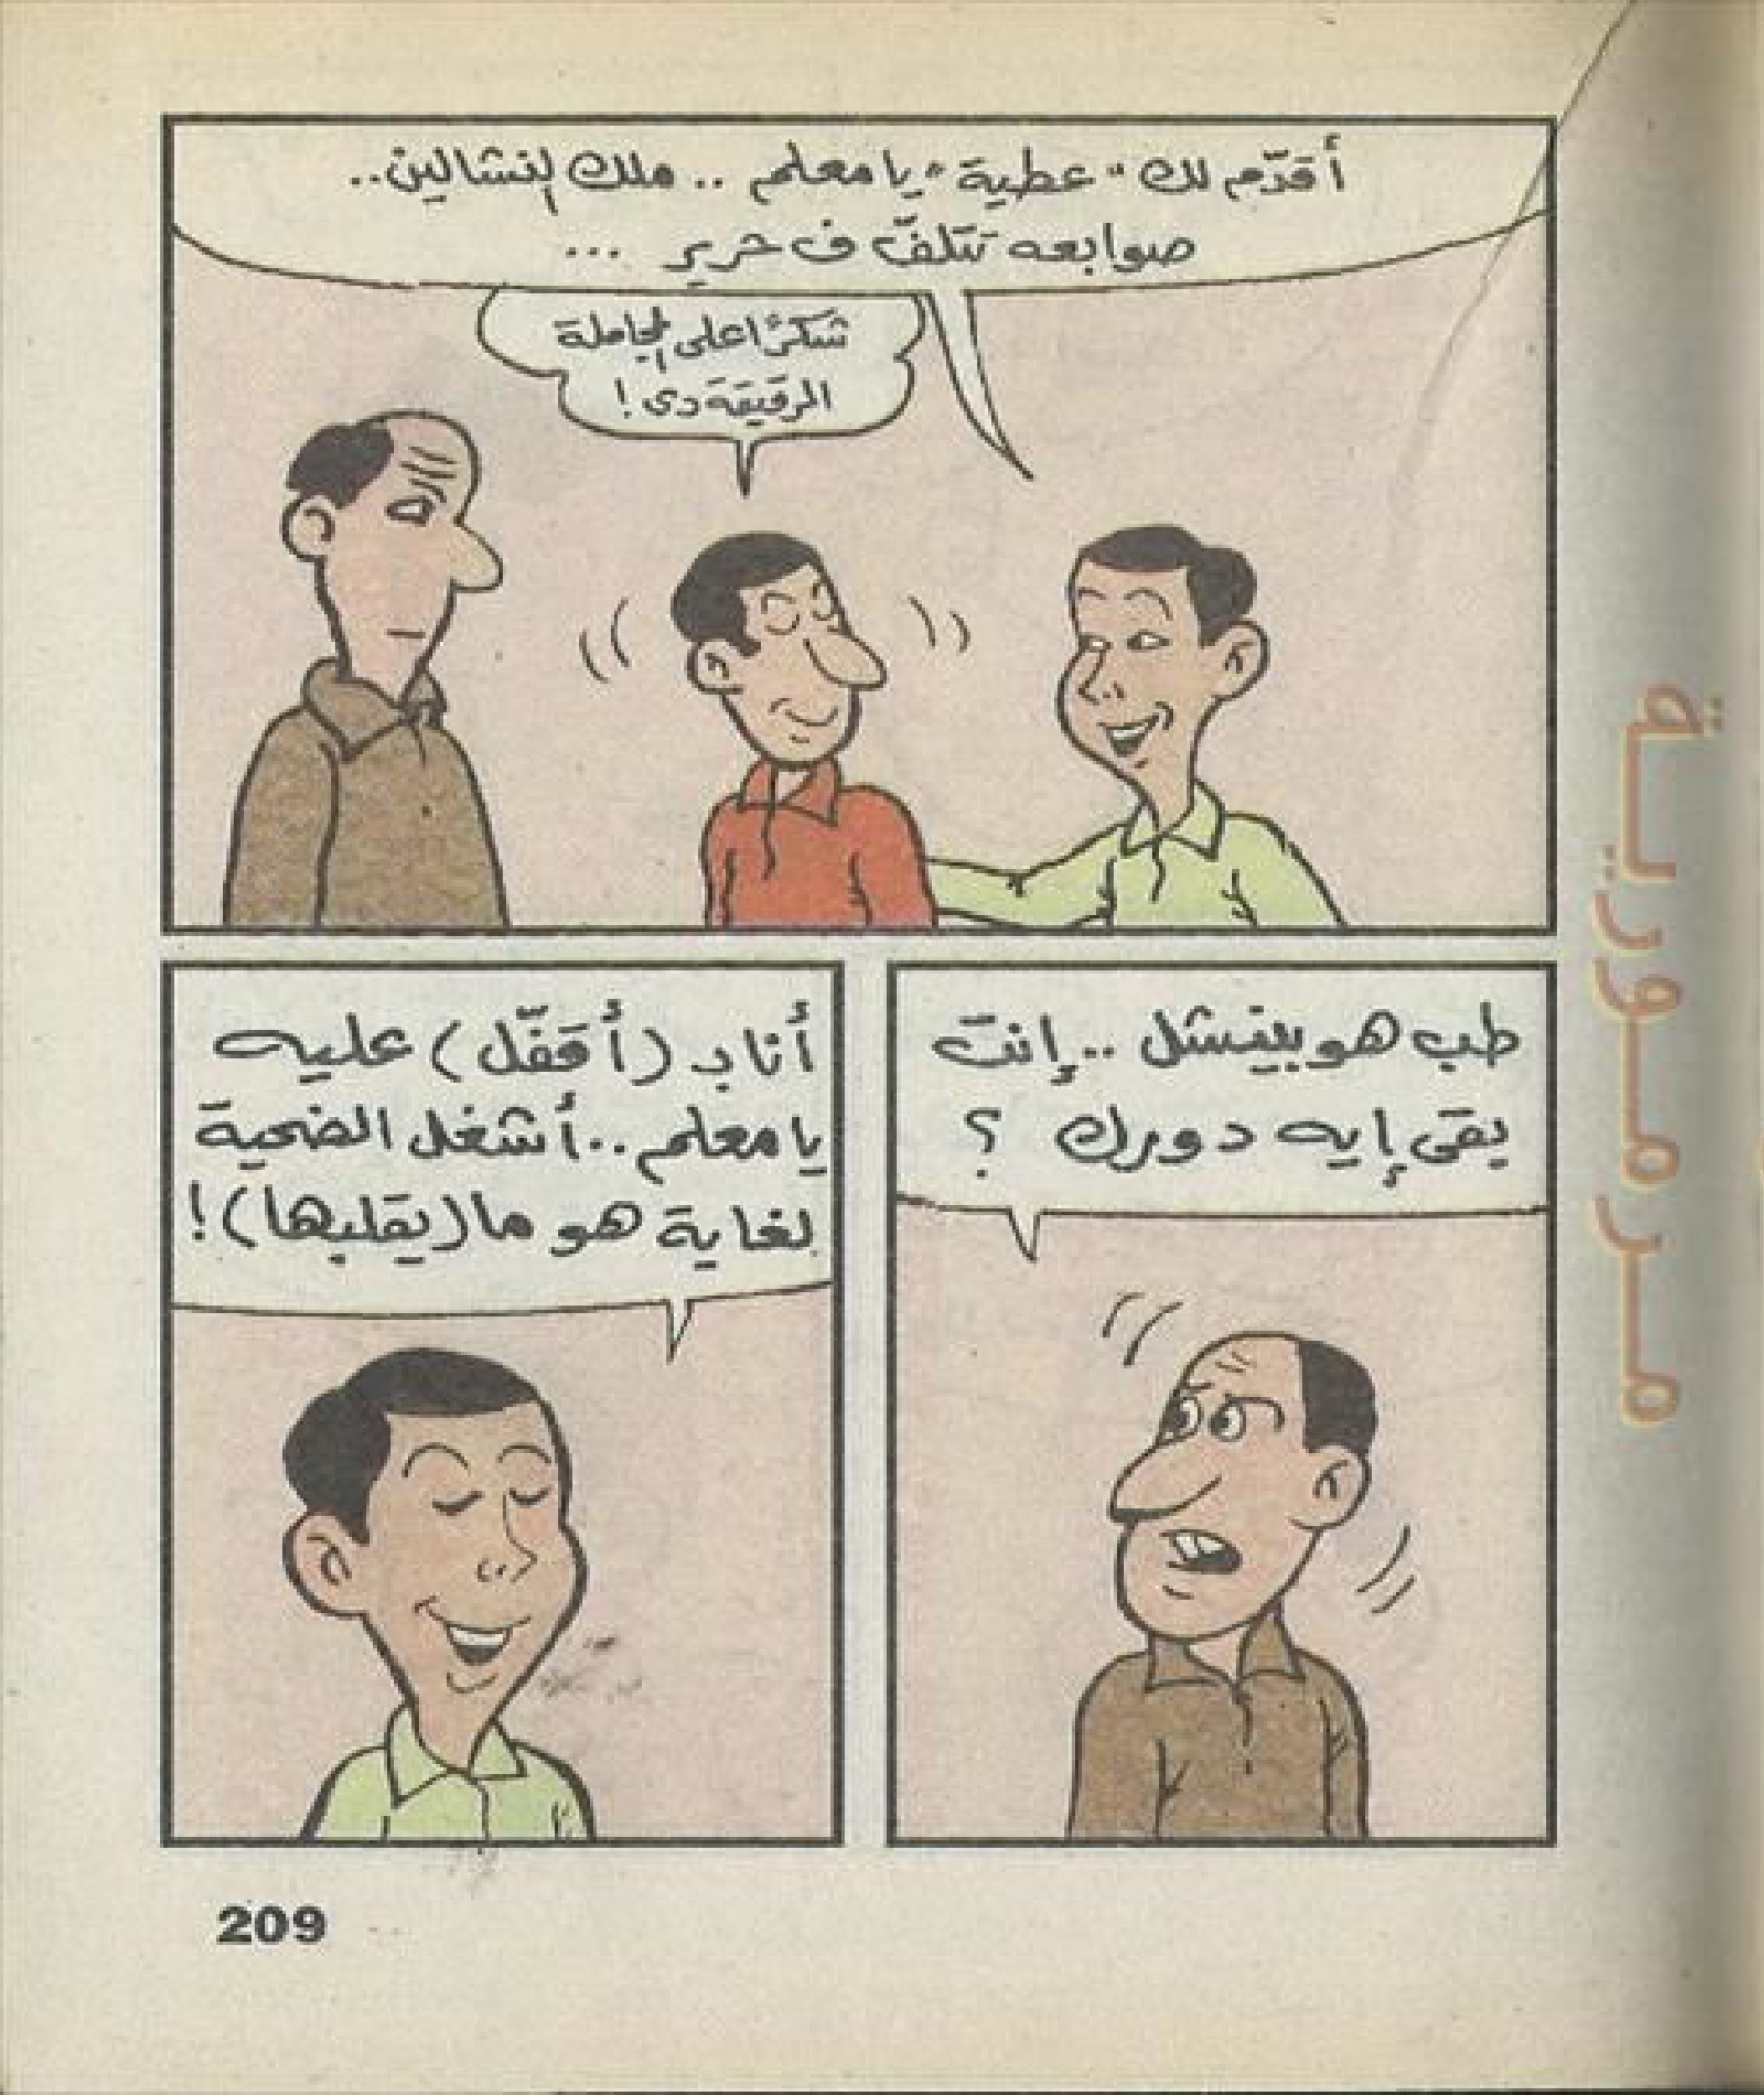 أقدّم لك "عطية" يا معلم .. ملك النشالين..
صوابعه تتلفّ ف حرير ...
شكرًا على المجاملة
الرقيقة دى !
طب هو بينشل .. إنت
يقى إيه دورك ؟
أنا بـ (أقفّل) عليه
يا معلم .. أشغل الضحية
لغاية هو ما (يقلبها) !
209
مرمورية